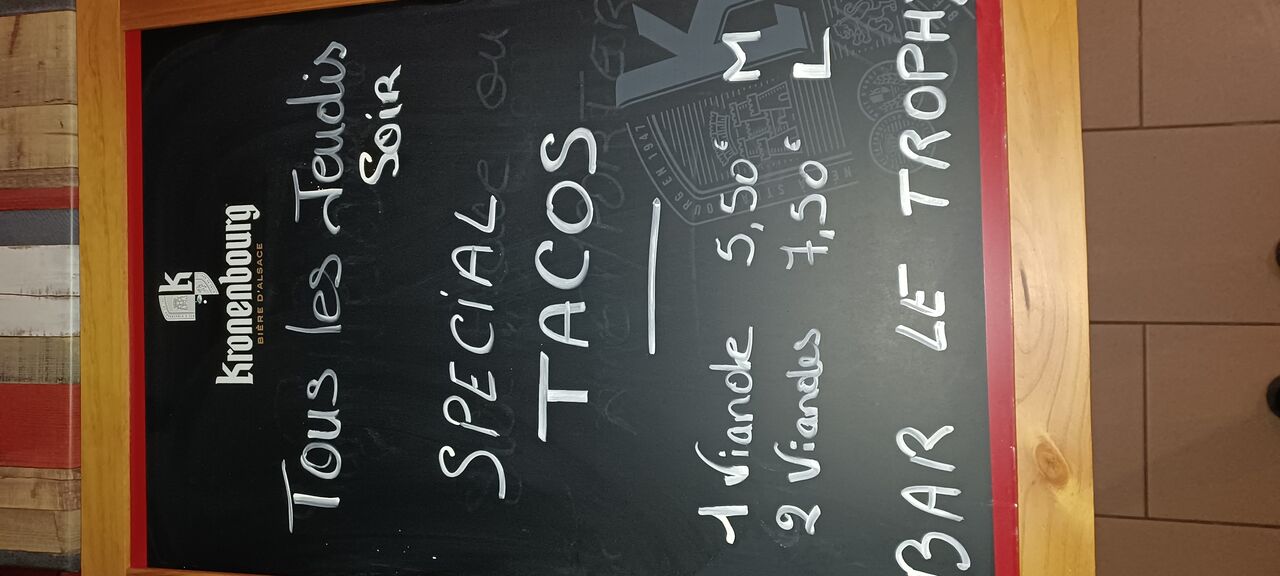 Kronenbourg
BIÈRE D'ALSACE
Tous les Jeudis
Soir
SPECIAL
TACOS
EN 1947
1 Viande 5,50€ M
2 Viandes 7,50€ L
BAR LE TROPH